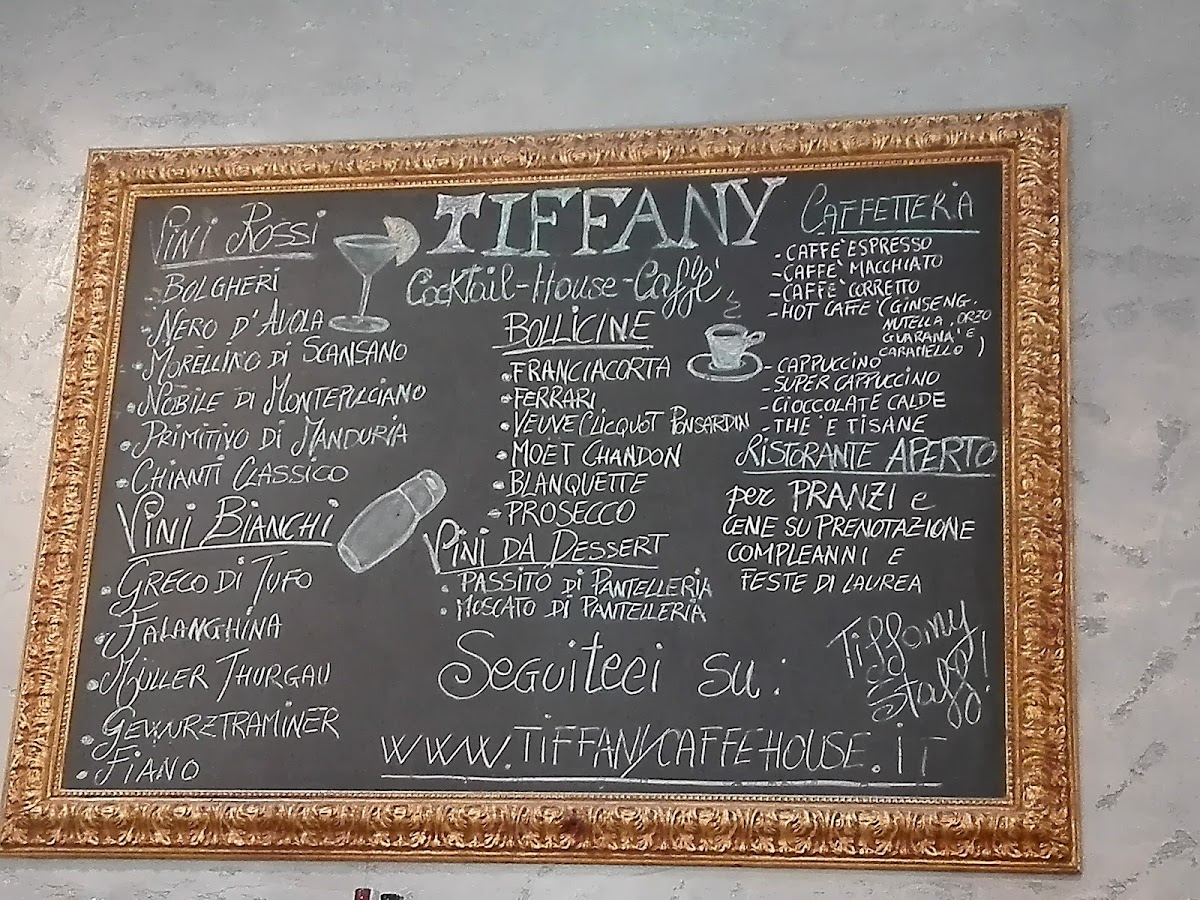 TIFFANY
Cocktail-House-Caffè
Vini Rossi
• BOLGHERI
• NERO D'AVOLA
• MORELLINO DI SCANSANO
• NOBILE DI MONTEPULCIANO
• PRIMITIVO DI MANDURIA
• CHIANTI CLASSICO
VINI BIANCHI
• GRECO DI TUFO
• FALANGHINA
• MÜLLER THURGAU
• GEWURZTRAMINER
• FIANO
BOLLICINE
• FRANCIACORTA
• FERRARI
• VEUVE CLICQUOT PONSARDIN
• MOËT CHANDON
• BLANQUETTE
• PROSECCO
VINI DA DESSERT
• PASSITO DI PANTELLERIA
• MOSCATO DI PANTELLERIA
CAFFETTERIA
- CAFFE' ESPRESSO
- CAFFE' MACCHIATO
- CAFFE' CORRETTO
- HOT CAFFE' (GINSENG,
NUTELLA, ORZO
GUARANA' E
CARAMELLO)
- CAPPUCCINO
- SUPER CAPPUCCINO
- CIOCCOLATE CALDE
- THE' E TISANE
RISTORANTE APERTO
per PRANZI e
CENE SU PRENOTAZIONE
COMPLEANNI E
FESTE DI LAUREA
Tiffany
Staff!
Seguiteci su:
WWW.TIFFANYCAFFEHOUSE.IT